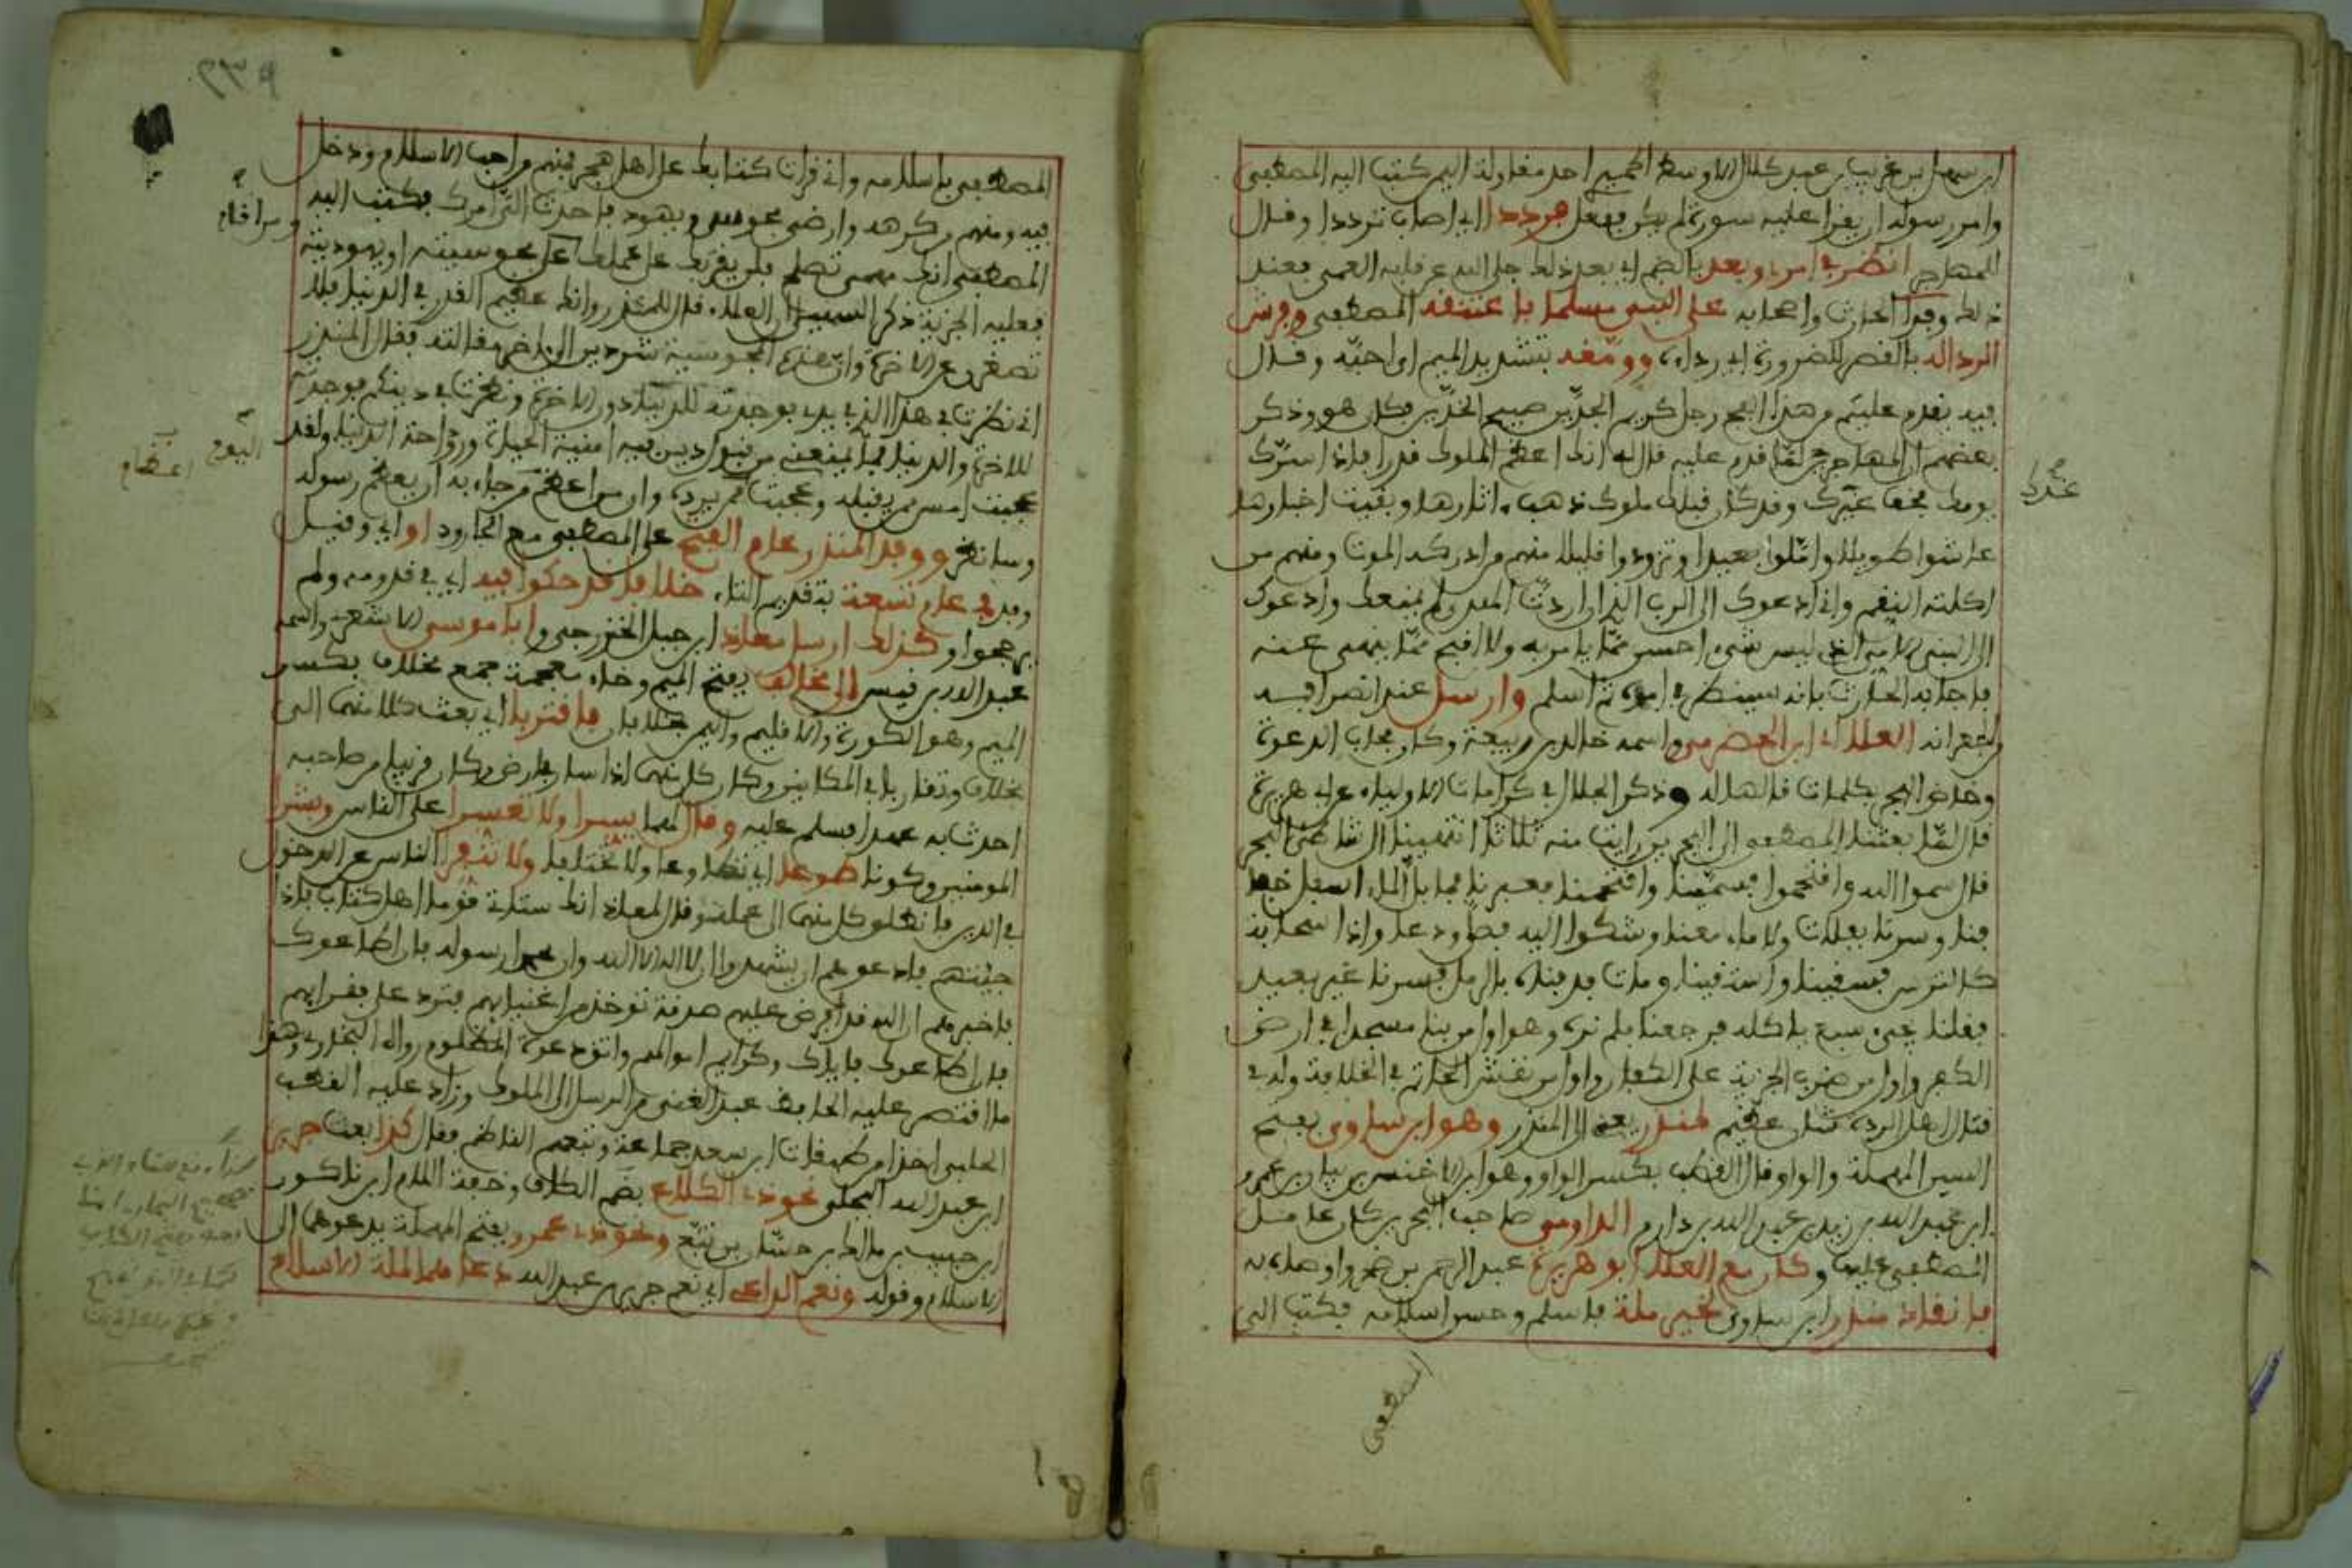 ابن سهل بن عريب بن عبد كلال الاوسط الحميري احد مقاولة اليمن كتب اليه المصطفى
وامر رسوله ان يقرا عليه سورة لم يكن ففعل فرددا اي اصاب ترددا وقال
للمهاجر انظر في امري وبعد بالضم اي بعد ذلك جلى الله عن قلبه العمى فعند
ذلك وفد الحارث واصحابه على النبي مسلما باعتنقه المصطفى وفرش
الرداله بالقصر للضرورة اي رداءه وومقه بتشديد الميم اي احبه وقال
فيه يقدم عليكم من هذا الفج رجل كريم الجدين صبيح الخدين فكان هو وذكر
بعضهم ان المهاجر لما قدم عليه قال له انك اعظم الملوك قدرا فاذا سرك
يومك فخف غدك وقد كان قبلك ملوك ذهبت اثارها وبقيت اخبارها
عاشوا طويلا واملوا بعيدا وتزودوا قليلا منهم من ادركه الموت ومنهم من
اكلته النقم واني ادعوك الى الرب الذي ان اردت الهدى لم يمنعك وادعوك
الى النبي الامي الذي ليس شيء احسن مما يامر به ولا اقبح مما ينهى عنه
فاجابه الحارث بانه سينظر في امره ثم اسلم وارسل عند انصرافه
الجعرانه العلاء اي ابن الحضرمي واسمه خالد بن ربيعة وكان مجاب الدعوة
وخاض البحر بكلمات قالها له وذكر الجلال في كرامات الاولياء عن ابي هريرة
قال لما بعثنا المصطفى الى البحرين رايت منه ثلاثا انتهينا الى شاطئ البحر
فقال سموا الله واقتحموا فسمينا واقتحمنا فعبرنا فما بل الماء اسفل خفا
فنا وسرنا بفلاة ولا ماء معنا وشكوا اليه فصلى ودعا واذا سحابة
كالترس فسقينا واستقينا ومات فدفناه بالرمل فسرنا غير بعيد
فقلنا يجيء سبع ياكله فرجعنا فلم نره وهو اول من بنا مسجدا في ارض
الكفر واول من ضرب الجزية على الكفار واول من نقش الخاتم في الخلافة وله في
قتال اهل الردة شان عظيم لمنذر يعني الى المنذر وهو ابن ساوى بفتح
السين المهملة والواو وقال القطب بكسر الواو وهو ابن الاخنس بن بيان بن عمرو
ابن عبد الله بن زيد بن عبد الله بن دارم الدارمي صاحب البحرين كان عامل
المصطفى عليها وكان مع العلاء ابو هريرة عبد الرحمن بن صخر واوصاه به
فانقاد منذر ابن ساوى لخير ملة فاسلم وحسن اسلامه فكتب الى
المصطفى
غدك
المصطفى باسلامه واني قرات كتابك على اهل هجر فمنهم من احب الاسلام ودخل
فيه ومنهم من كرهه وارضى مجوس ويهود فاحدث الى امرك فكتب اليه
المصطفى انك مهمى تصلح فلن نعزلك عن عملك ومن اقام على مجوسيته او يهوديته
فعليه الجزية ذكر السهيلي ان العلاء قال للمنذر وانك عظيم القدر في الدنيا فلا
تصغرن عن الاخرة وان هذه المجوسية شر دين الى اخر مقالته فقال المنذر
اني نظرت في هذا الذي بيدي فوجدته للدنيا دون الاخرة ونظرت في دينكم فوجدته
للاخرة والدنيا فما يمنعني من قبول دين فيه امنية الحياة وراحة الدنيا ولقد
عجبت امس ممن يقبله وعجبت اليوم ممن يرده وان من اعظام من جاء به ان يعظم رسوله
وسانظر ووفد المنذر عام الفتح على المصطفى مع الجارود او اي وقيل
وفد في عام تسعة بتقديم التاء خلافا قد حكوا فيه اي في قدومه ولم
يرجحوا وكذلك ارسل معاذا ابن جبل الخزرجي وابا موسى الاشعري واسمه
عبد الله بن قيس الى مخالف بفتح الميم وخاء معجمة جمع مخلاف بكسر
الميم وهو الكورة والاقليم واليمن مخلافان فافتربا اي بعث كلا منهما الى
مخلاف وتقاربا في المكانين وكان كل منهما اذا سار في ارض وكان قريبا من صاحبه
احدث به عهدا فسلم عليه وقال لهما يسرا ولا تعسرا على الناس وبشرا
المومنين وكونا طوعا اي تطاوعا ولا تختلفا ولا تنفرا الناس عن الدخول
في الدين فانطلق كل منهما الى عمله وقال لمعاذ انك ستاتي قوما اهل كتاب فاذا
جئتهم فادعوهم ان يشهدوا ان لا اله الا الله وان محمدا رسوله فان اطاعوك
فاخبرهم ان الله قد فرض عليهم صدقة توخذ من اغنيائهم فترد على فقرائهم
فان اطاعوك فاياك وكرائم اموالهم واتق دعوة المظلوم رواه البخاري وهذا
ما اقتصر عليه الحافظ عبد الغني من الرسل الى الملوك وزاد عليه القطب
الحلبي اخذا من طبقات ابن سعد جماعة وتبعهم الناظم فقال كذا بعث جرير
ابن عبد الله البجلي نحو ذي الكلاع بضم الكاف وخفة اللام ابن ناكور
ابن حبيب بن مالك بن حسان بن تبع ونحو ذي عمرو بفتح المهملة يدعوهما الى
الاسلام وقوله ونعم الداعي اي نعم جرير بن عبد الله دعاهما لملة الاسلام
ومن اقام
اليوم
اعظام